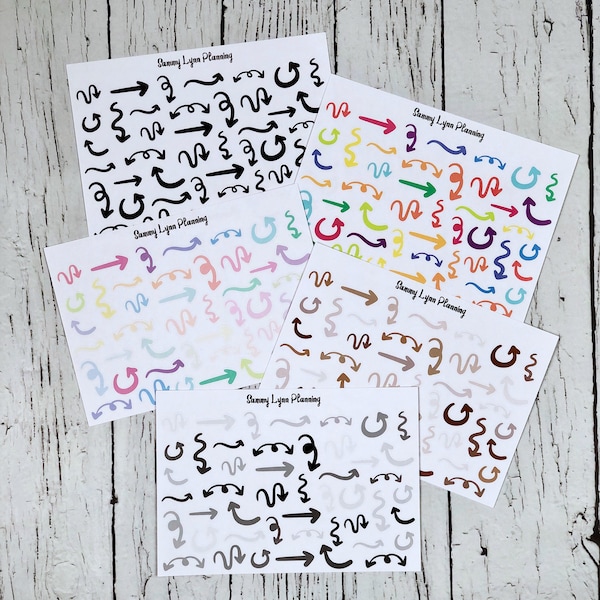 Sammy Lynn Planning
Sammy Lynn Planning
Sammy Lynn Planning
Sammy Lynn Planning
Sammy Lynn Planning